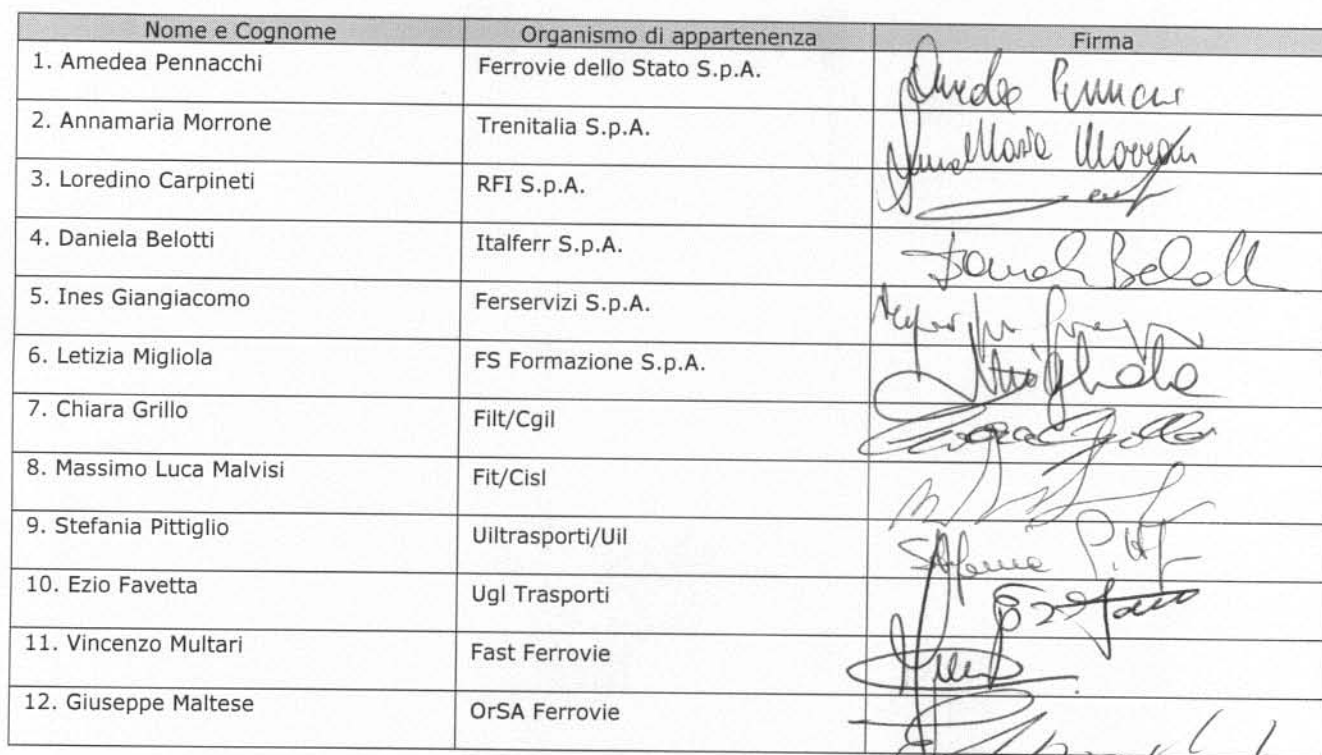 Nome e Cognome Organismo di appartenenza Firma
1. Amedea Pennacchi Ferrovie dello Stato S.p.A.
2. Annamaria Morrone Trenitalia S.p.A.
3. Loredino Carpineti RFI S.p.A.
4. Daniela Belotti Italferr S.p.A.
5. Ines Giangiacomo Ferservizi S.p.A.
6. Letizia Migliola FS Formazione S.p.A.
7. Chiara Grillo Filt/Cgil
8. Massimo Luca Malvisi Fit/Cisl
9. Stefania Pittiglio Uiltrasporti/Uil
10. Ezio Favetta Ugl Trasporti
11. Vincenzo Multari Fast Ferrovie
12. Giuseppe Maltese OrSA Ferrovie